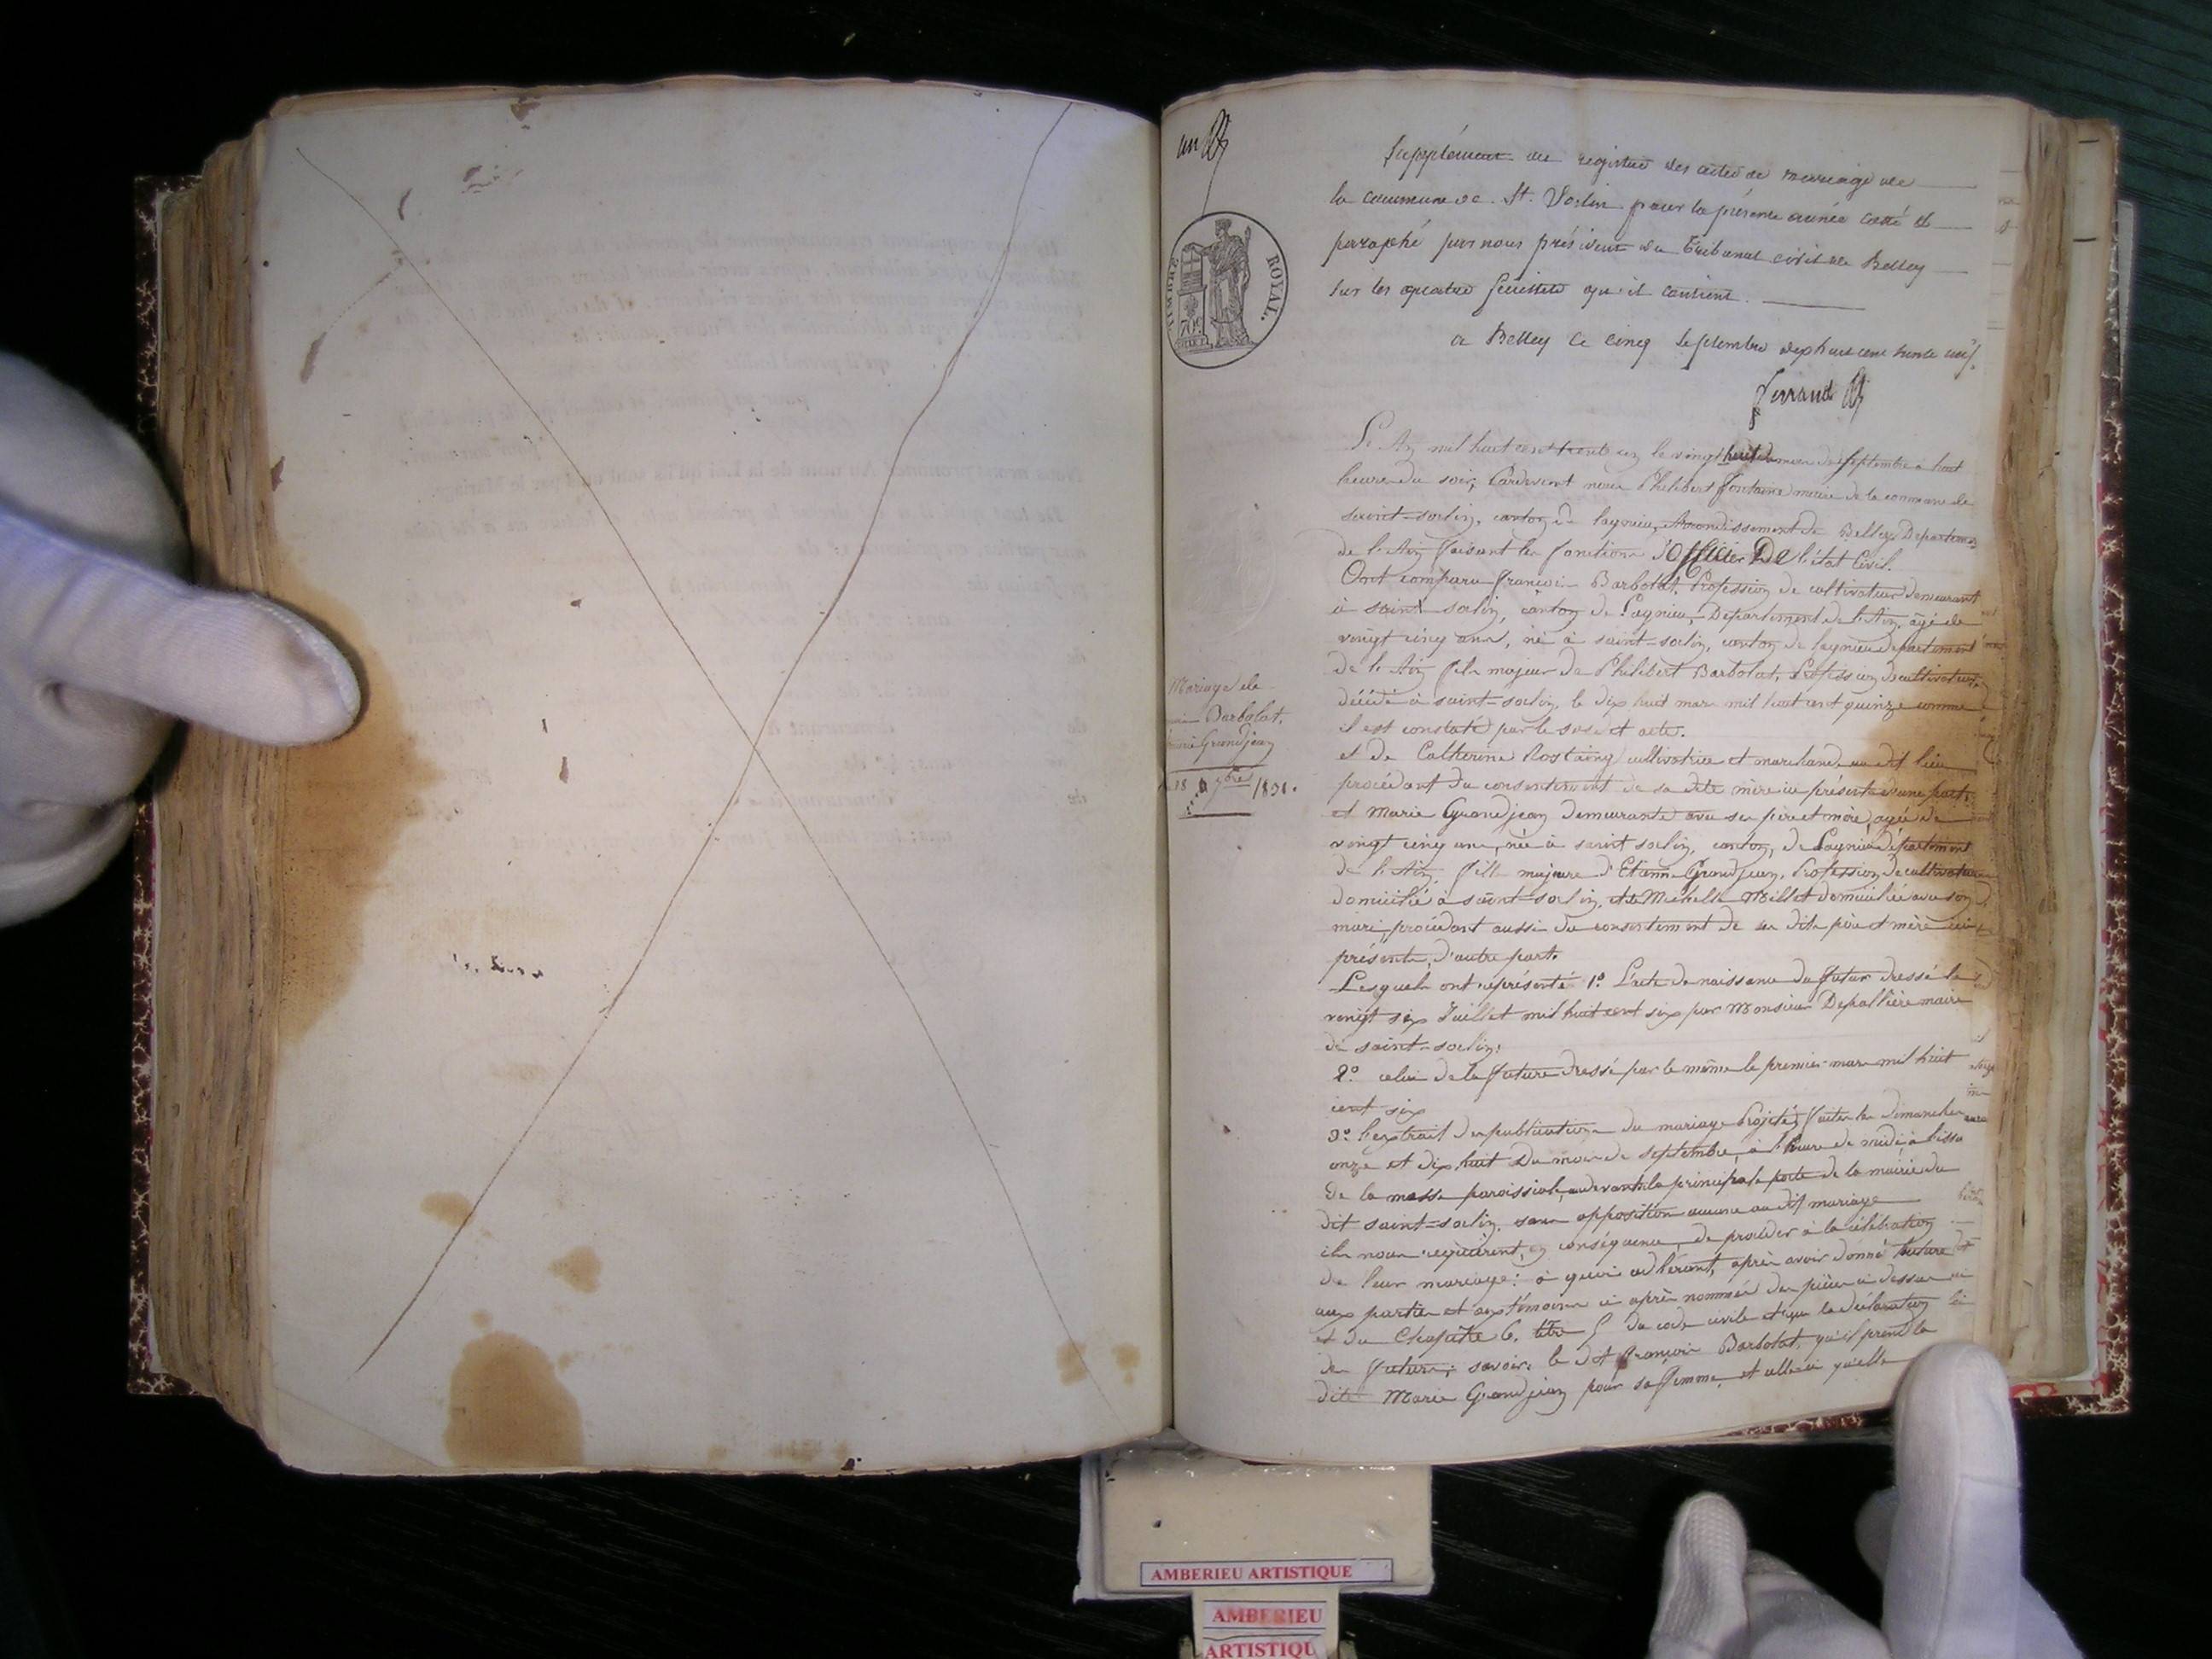 un
TIMBRE ROYAL.
70c
Supplément au registre des actes de mariage de
la commune de St. Sorlin pour la présente année cotté et
paraphé par nous président du Tribunal civil de Belley
sur les quatre feuillets qu'il contient.
a Belley le cinq septembre dix huit cent trente un
Perrand
Mariage de
Barbolat,
Grandjean
28 7bre 1831.
L'An mil huit cent trente un le vingt huit du mois de septembre à huit
heures du soir, Pardevant nous Philibert Fontaine maire de la commune de
saint-sorlin, canton de lagnieu, Arrondissement de Belley Département
de l'Ain faisant les fonctions d'Officier De l'état Civil.
Ont comparu françois Barbolat, Profession de cultivateur demeurant
à saint sorlin, canton de Lagnieu, Département de l'Ain, âgé de
vingt cinq ans, né à saint-sorlin, canton de lagnieu département
de l'Ain fils majeur de Philibert Barbolat, Profession de cultivateur
décédé à saint-sorlin, le dix huit mars mil huit cent quinze comme
il est constaté par le susdit acte.
et de Catherine Rostaing cultivatrice et marchande au dit lieu
procédant du consentement de sa dite mère ici présente d'une part,
et Marie Grandjean demeurante avec ses père et mère, agée de
vingt cinq ans, née à saint sorlin, canton, de Lagnieu département
de l'Ain, fille majeure d'Etienne Grandjean, Profession de cultivateur
domicilié à saint-sorlin, et de Michelle Millet domiciliée avec son
mari, procédant aussi du consentement de ses dits père et mère ici
présents, d'autre part.
Lesquels ont représenté 1.° L'acte de naissance du futur dressé le
vingt six Juillet mil huit cent six par Monsieur Depallière maire
de saint-sorlin;
2.° celui de la future dressé par le même le premier mars mil huit
cent six
3.° l'extrait des publications du mariage Projeté, faites les dimanches
onze et dix huit du mois de septembre, à l'heure de midi, à l'issu
de la messe paroissiale, au devant la principale porte de la mairie du
dit saint-sorlin, sans opposition aucune au dit mariage
ils nous requièrent, en conséquence, de procéder à la célébration
de leur mariage: à quoi adhérant, après avoir donné lecture
aux parties et aux témoins ci après nommés des pièces ci dessus
et du Chapitre 6. titre 5 du code civile et sur la déclaration
des futurs; savoir: le dit François Barbolat, qu'il prend la
dite Marie Grandjean pour sa femme, et celle-ci qu'elle
AMBERIEU ARTISTIQUE
AMBERIEU
ARTISTIQU